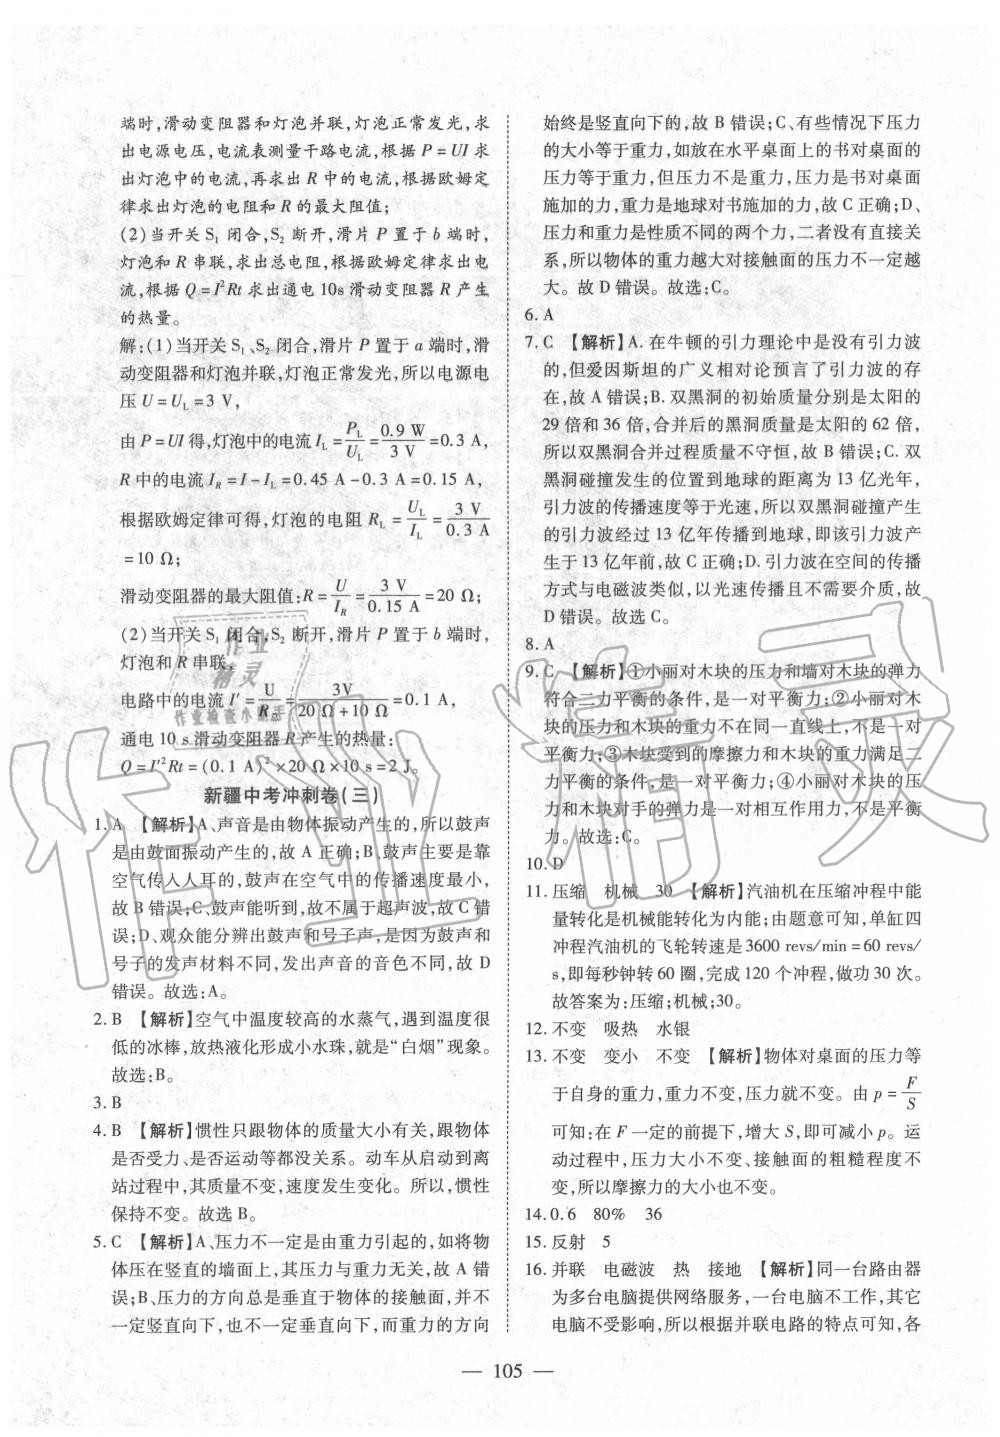 端时,滑动变阻器和灯泡并联,灯泡正常发光,求
出电源电压,电流表测量干路电流,根据 P=UI 求
出灯泡中的电流,再求出 R 中的电流,根据欧姆定
律求出灯泡的电阻和 R 的最大阻值;
(2)当开关 S₁ 闭合,S₂ 断开,滑片 P 置于 b 端时,
灯泡和 R 串联,求出总电阻,根据欧姆定律求出电
流,根据 Q=I²Rt 求出通电10s 滑动变阻器 R 产生
的热量。
解:(1)当开关 S₁、S₂ 闭合,滑片 P 置于 a 端时,滑
动变阻器和灯泡并联,灯泡正常发光,所以电源电
压 U=U_L=3 V,
由 P=UI 得,灯泡中的电流 I_L=P_L/U_L=0.9 W/3 V=0.3 A,
R 中的电流 I_R=I-I_L=0.45 A-0.3 A=0.15 A,
根据欧姆定律可得,灯泡的电阻 R_L=U_L/I_L=3 V/0.3 A
=10 Ω;
滑动变阻器的最大阻值:R=U/I_R=3 V/0.15 A=20 Ω;
(2)当开关 S₁ 闭合,S₂ 断开,滑片 P 置于 b 端时,
灯泡和 R 串联。
电路中的电流 I′=U/R总=3V/20 Ω+10 Ω=0.1 A,
通电10 s 滑动变阻器 R 产生的热量:
Q=I′²Rt=(0.1 A)²×20 Ω×10 s=2 J。
新疆中考冲刺卷(三)
1. A 【解析】A、声音是由物体振动产生的,所以鼓声
是由鼓面振动产生的,故 A 正确;B、鼓声主要是靠
空气传入人耳的,鼓声在空气中的传播速度最小,
故 B 错误;C、鼓声能听到,故不属于超声波,故 C 错
误;D、观众能分辨出鼓声和号子声,是因为鼓声和
号子的发声材料不同,发出声音的音色不同,故 D
错误。故选:A。
2. B 【解析】空气中温度较高的水蒸气,遇到温度很
低的冰棒,放热液化形成小水珠,就是“白烟”现象。
故选:B。
3. B
4. B 【解析】惯性只跟物体的质量大小有关,跟物体
是否受力、是否运动等都没关系。动车从启动到离
站过程中,其质量不变,速度发生变化。所以,惯性
保持不变。故选 B。
5. C 【解析】A、压力不一定是由重力引起的,如将物
体压在竖直的墙面上,其压力与重力无关,故 A 错
误;B、压力的方向总是垂直于物体的接触面,并不
一定竖直向下,也不一定垂直向下,而重力的方向
始终是竖直向下的,故 B 错误;C、有些情况下压力
的大小等于重力,如放在水平桌面上的书对桌面的
压力等于重力,但压力不是重力,压力是书对桌面
施加的力,重力是地球对书施加的力,故 C 正确;D、
压力和重力是性质不同的两个力,二者没有直接关
系,所以物体的重力越大对接触面的压力不一定越
大。故 D 错误。故选:C。
6. A
7. C 【解析】A. 在牛顿的引力理论中是没有引力波
的,但爱因斯坦的广义相对论预言了引力波的存
在,故 A 错误;B. 双黑洞的初始质量分别是太阳的
29 倍和 36 倍,合并后的黑洞质量是太阳的 62 倍,
所以双黑洞合并过程质量不守恒,故 B 错误;C. 双
黑洞碰撞发生的位置到地球的距离为 13 亿光年,
引力波的传播速度等于光速,所以双黑洞碰撞产生
的引力波经过 13 亿年传播到地球,即该引力波产
生于 13 亿年前,故 C 正确;D. 引力在空间的传播
方式与电磁波类似,以光速传播且不需要介质,故
D 错误。故选:C。
8. A
9. C 【解析】①小丽对木块的压力和墙对木块的弹力
符合二力平衡的条件,是一对平衡力;②小丽对木
块的压力和木块的重力不在同一直线上,不是一对
平衡力;③木块受到的摩擦力和木块的重力满足二
力平衡的条件,是一对平衡力;④小丽对木块的压
力与木块对手的压力是一对相互作用力,不是平衡
力。故选:C。
10. D
11. 压缩 机械 30 【解析】汽油机在压缩冲程中能
量转化是机械能转化为内能;由题意可知,单缸四
冲程汽油机的飞轮转速是 3600 revs/min=60 revs/
s,即每秒钟转 60 圈,完成 120 个冲程,做功 30 次。
故答案为:压缩;机械;30。
12. 不变 吸热 水银
13. 不变 变小 不变 【解析】物体对桌面的压力等
于自身的重力,重力不变,压力就不变。由 p=F/S
可知:在 F 一定的前提下,增大 S,即可减小 p。运
动过程中,压力大小不变、接触面的粗糙程度不
变,所以摩擦力的大小也不变。
14. 0.6 80% 36
15. 反射 5
16. 并联 电磁波 热 接地 【解析】同一台路由器
为多台电脑提供网络服务,一台电脑不工作,其它
电脑不受影响,所以根据并联电路的特点可知,各
— 105 —
作业精灵
作业
精灵
作业检查小助手